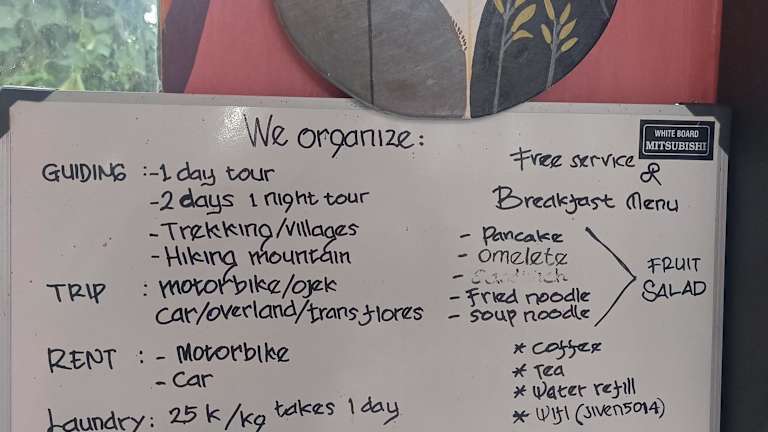 We organize:
GUIDING :-1 day tour
-2 days 1 night tour
-Trekking/villages
-Hiking mountain
TRIP : motorbike/ojek
car/overland/transflores
RENT : - Motorbike
- car
Laundry: 25k/kg takes 1 day
WHITE BOARD
MITSUBISHI
Free service
&
Breakfast Menu
- Pancake
- Omelete
- Fried noodle
- Soup noodle
FRUIT
SALAD
* Coffee
* Tea
* Water refill
* Wifi (Jiven5014)